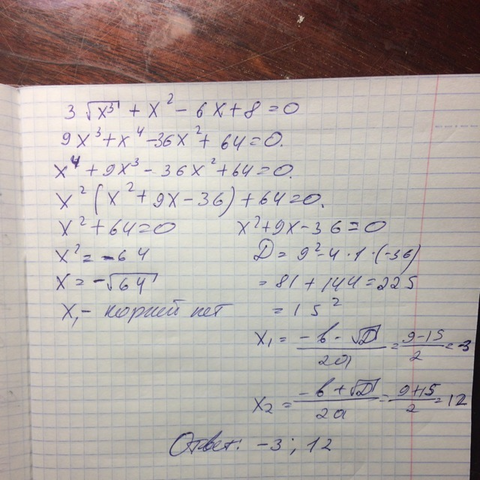 3√x³ + x² - 6x + 8 = 0
9x³ + x⁴ - 36x² + 64 = 0.
x⁴ + 9x³ - 36x² + 64 = 0.
x² (x² + 9x - 36) + 64 = 0.
x² + 64 = 0 x² + 9x - 36 = 0
x² = -64 D = 9² - 4 · 1 · (-36)
x = -√64 = 81 + 144 = 225
x₁ - корней нет = 15²
x₁ = (-b - √D)/2a = (9-15)/2 = -3
x₂ = (-b + √D)/2a = (9+15)/2 = 12
Ответ: -3; 12